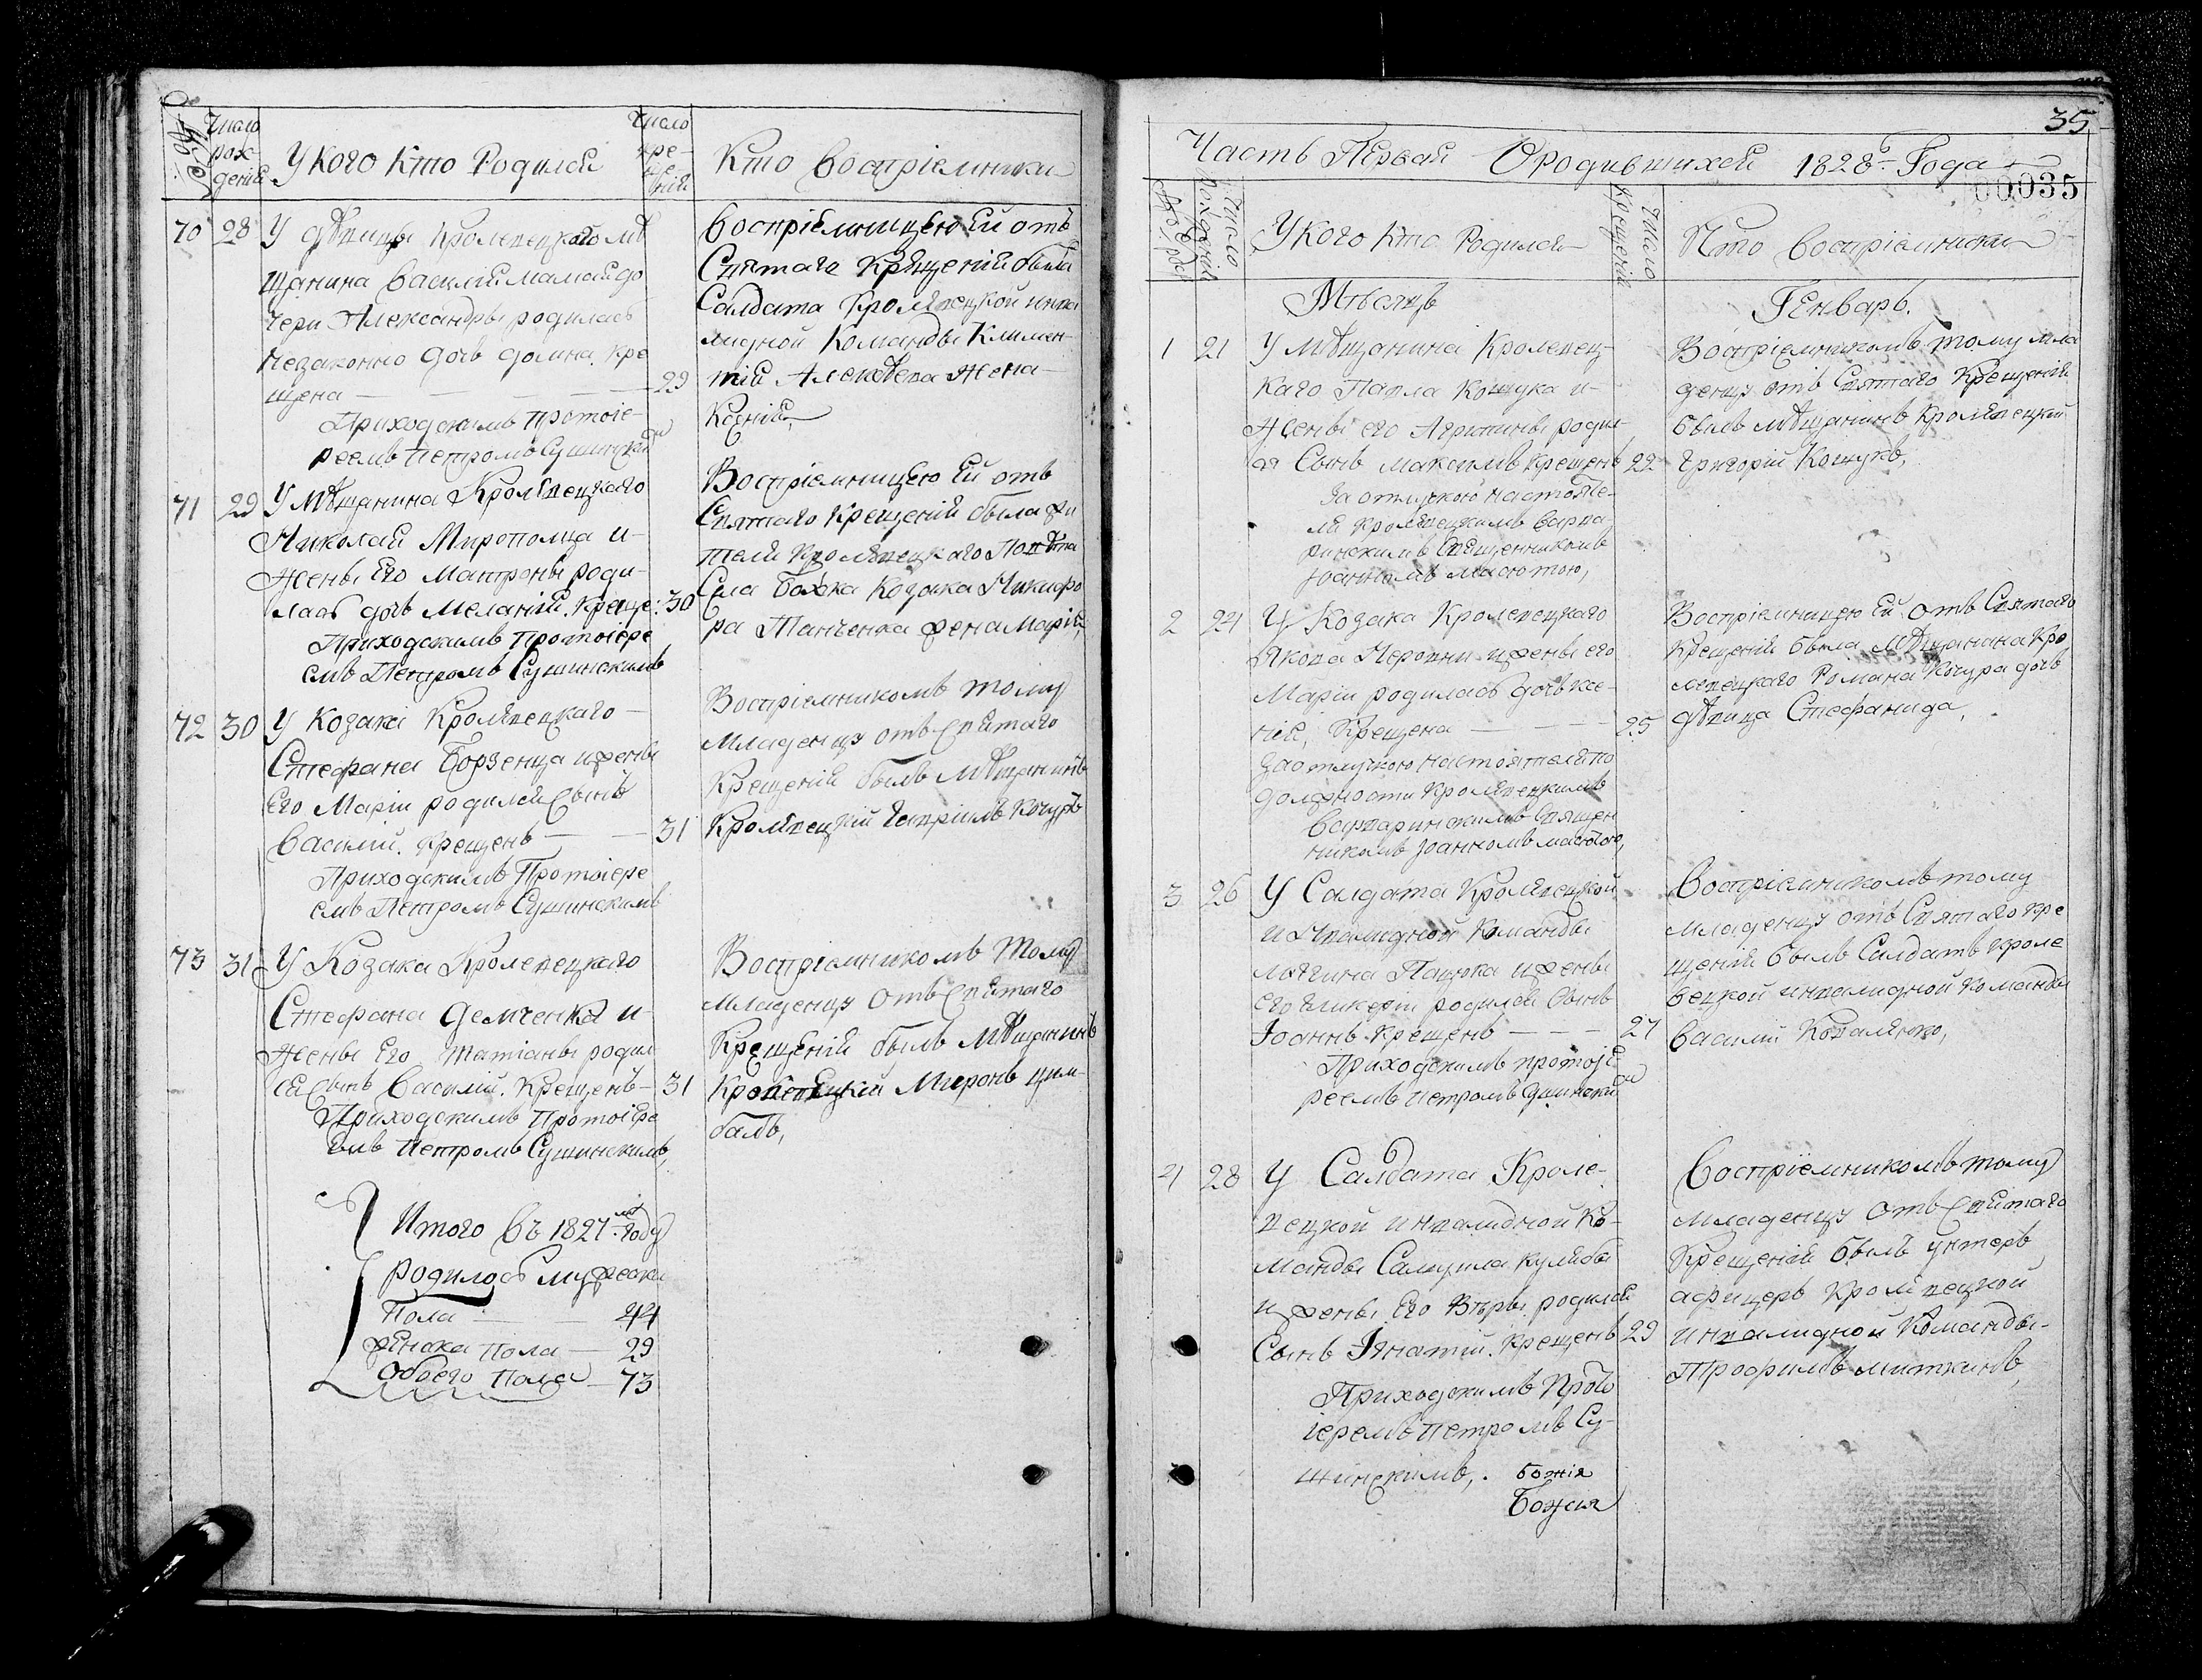 Число рождений
У кого кто Родился
Число крещений
Кто восприемники
70 28 У дѣвицы Кролевецкого мѣ
щанина Василия Мамай до
чери Александры родилась
незаконно дочь Домна. Кре
щена — 29
Приходским Протоіе
реем Петром Сушинским
Восприемницею Ей отъ
Святаго Крещенія была
Салдата Кролевецкой инва
лидной Команды Климен-
тія Алексѣева Жена
Ксенія,
71 29 У Мѣщанина Кролѣвецкаго
Николая Миропольца и
Жены Его Матроны роди-
лась дочь Меланія. Креще: 30
Приходскимъ Протоіере
емъ Петромъ Сушинскимъ
Воспріемницею Ей отъ
Святаго Крещенія была жи
теля Кролѣвецкаго Повѣта
Села Козака Никифо
ра Танченка жена Марія,
72 30 У Козака Кролѣвецкаго
Стефана Борзенца и жены
Его Маріи родился Сынъ
Василій. Крещенъ — 31
Приходскимъ Протоіере
емъ Петромъ Сушинскимъ
Воспріемникомъ тому
Младенцу отъ Святаго
Крещенія былъ Мѣщанинъ
Кролѣвецкій Гавріилъ Кочуръ
73 31 У Козака Кролевецкаго
Стефана Демченка и
Жены Его Татіаны родил
ся Сынъ Василій. Крещенъ — 31
Приходскимъ Протоіере
емъ Петромъ Сушинскимъ,
Воспріемникомъ Тому
Младенцу отъ Святаго
Крещенія былъ Мѣщанинъ
Кролевецкій Миронъ Цим-
балъ,
Итого въ 1827мъ году
родилось мужеска
Пола — 44
женска Пола — 29
Обоего Пола — 73
35
Часть Первая О родившихся 1828го Года
00035
Число Рожденій
У кого кто Родился
Число Крещенія
Кто воспріемники
Мѣсяцъ Генварь.
1 21 У Мѣщанина Кролевец-
каго Павла Кошука и
Жены его Агрипины родил
ся Сынъ Максимъ Крещенъ 22
За отлучкою настояте-
ля Кролѣвецкимъ Варва
ринскимъ Священникомъ
Іоанномъ Масютою,
Воспріемникомъ тому мла
денцу отъ Святаго Крещенія
былъ мѣщанинъ Кролѣвецкій
Григорій Кошукъ,
2 24 У Козака Кролевецкаго
Якова и жены его
Маріи родилась дочь Ксе-
нія, Крещена — 25
За отлучкою настоятеля по
должности Кролѣвецкимъ
Варваринскимъ Священ
никомъ Іоанномъ Масютою,
Воспріемницею Ей отъ Святаго
Крещенія была Мѣщанина Кро
левецкаго Романа Кочура дочь
дѣвица Стефанида,
3 26 У Салдата Кролѣвецкой
Инвалидной Команды
Лонгина Пацюка и жены
его Гликеріи родился Сынъ
Іоаннъ. Крещенъ — 27
Приходскимъ протоіе
реемъ Петромъ Сушински
Воспріемникомъ тому
младенцу отъ Святаго Кре
щенія былъ Салдатъ Кроле
вецкой инвалидной Команды
Василій Ковалюко,
4 28 У Салдата Кроле-
вецкой инвалидной Ко-
манды Самуила Кулябы
и жены Его Вѣры родился
Сынъ Игнатій. Крещенъ 29
Приходскимъ Прото
іеремъ Петромъ Су-
шинскимъ,. Божія
Божия
Воспріемникомъ тому
младенцу отъ Святаго
Крещенія былъ унтеръ
афицеръ Кролѣвецкой
инвалидной Команды
Трофимъ Миткинъ,